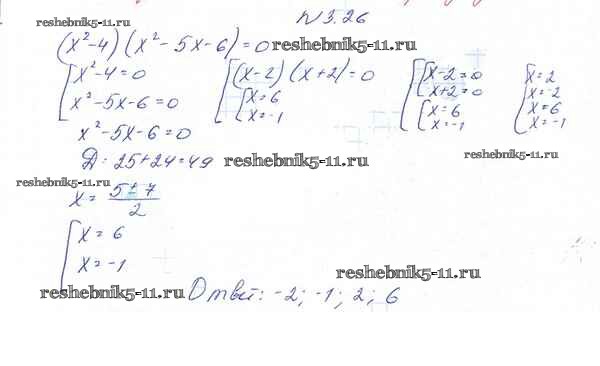 N 3.26
reshebnik5-11.ru
(x²-4)(x²-5x-6)=0 reshebnik5-11.ru
[x²-4=0 [(x-2)(x+2)=0 [[x-2=0 [x=2
x²-5x-6=0 [x=6 x+2=0 x=-2
x=-1 [x=6 x=6
x=-1 x=-1
x²-5x-6=0
Д=25+24=49 reshebnik5-11.ru reshebnik5-11.ru
reshebnik5-11.ru
x=(5±7)/2
[x=6
x=-1 reshebnik5-11.ru
reshebnik5-11.ru Ответ: -2; -1; 2; 6